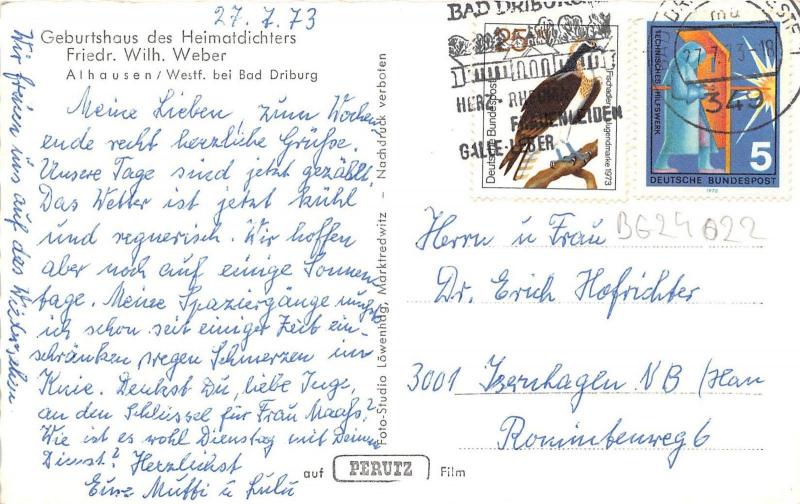 27.7.73
Geburtshaus des Heimatdichters
Friedr. Wilh. Weber
Alhausen/Westf. bei Bad Driburg
Meine Lieben, zum Wochen
ende recht herzliche Grüße.
Unsere Tage sind jetzt gezählt.
Das Wetter ist jetzt kühl
und regnerisch. Wir hoffen
aber noch auf einige Sonnen
tage. Meine Spaziergänge mußt
ich schon seit einiger Zeit ein-
schränken wegen Schmerzen im
Knie. Denkst Du, liebe Inge,
an den Schlüssel für Frau Maaß?
Wie ist es wohl Dienstag mit Deinem
Dienst? Herzlichst
Eure Mutti u Lulu
Wir freuen uns auf das Wiedersehen
Foto-Studio Löwenhag, Marktredwitz - Nachdruck verboten
auf PERUTZ Film
BAD DRIBURG
HERZ RHEUMA
FRAUENLEIDEN
GALLE-LEBER
25
Deutsche Bundespost
Fischadler Jugendmarke 1973
27.7.73-18
mu
349
TECHNISCHES HILFSWERK
5
DEUTSCHE BUNDESPOST
1970
Herrn u Frau
BG24 022
Dr. Erich Hofrichter
3001 Isernhagen NB /Han
Romintenweg 6